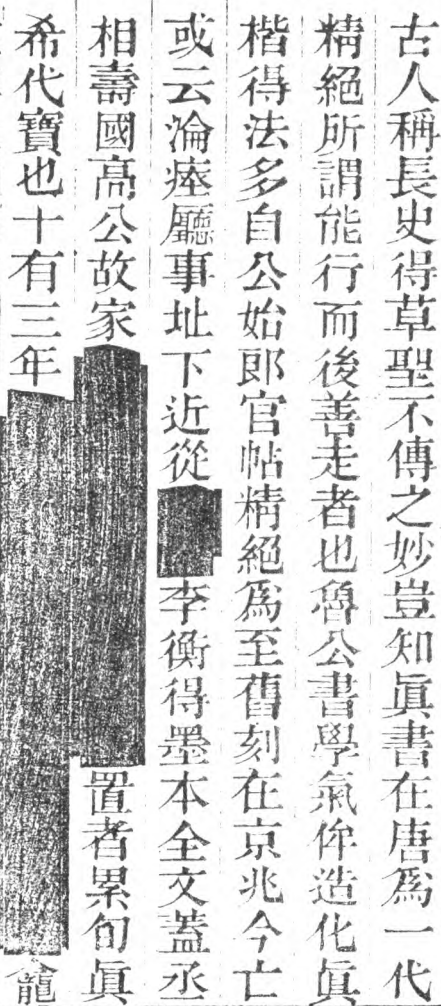 古人稱長史得草聖不傳之妙豈知眞書在唐爲一代
精絕所謂能行而後善走者也魯公書學氣侔造化眞
楷得法多自公始郎官帖精絕爲至舊刻在京兆今亡
或云淪瘞廳事址下近從李衡得墨本全文蓋丞
相壽國高公故家置者累旬眞
希代寶也十有三年龕